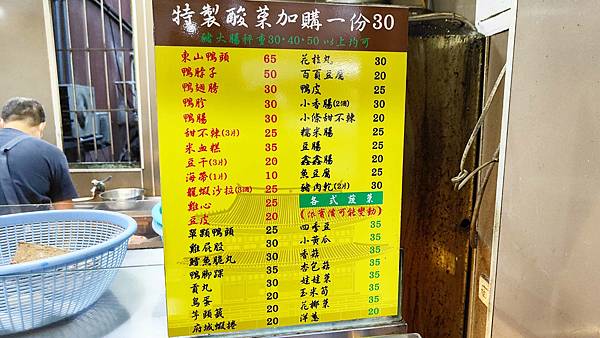 特製酸菜加購一份30
豬大腸秤重30、40、50以上均可
東山鴨頭 65
鴨脖子 50
鴨翅膀 30
鴨胗 30
鴨腸 30
甜不辣(3片) 25
米血糕 35
豆干(3片) 20
海帶(1片) 10
龍蝦沙拉(3個) 25
雞心 25
豆皮 20
單顆鴨頭 25
雞屁股 30
鱈魚脆丸 30
鴨腳踝 35
貢丸 30
鳥蛋 20
芋頭簽 20
府城蝦捲 20
花枝丸 30
百頁豆腐 20
鴨皮 25
小香腸(2個) 30
小條甜不辣 20
糯米腸 25
豆腸 25
鑫鑫腸 20
魚豆腐 20
豬肉乾(2片) 30
各式蔬菜
(依實價可能變動)
四季豆 35
小黃瓜 35
香菇 35
杏包菇 35
娃娃菜 35
玉米筍 35
花椰菜 35
洋蔥 20